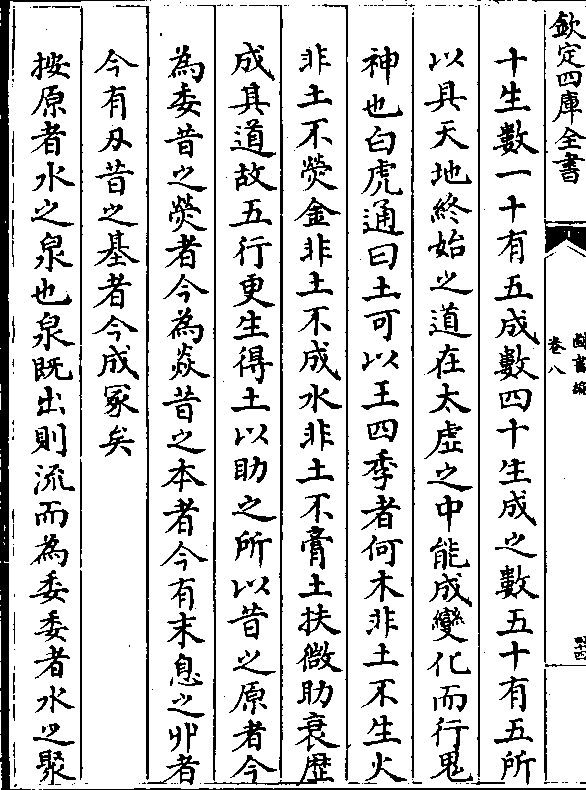 欽定四庫全書
圖書編
卷八
十生數一十有五成數四十生成之數五十有五所
以具天地終始之道在太虛之中能成變化而行鬼
神也白虎通曰土可以王四季者何木非土不生火
非土不熒金非土不成水非土不膏土扶微助衰歴
成其道故五行更生得土以助之所以昔之原者今
為委昔之熒者今為焱昔之本者今有末息之丱者
今有刄昔之基者今成冢矣
按原者水之泉也泉既出則流而為委委者水之聚